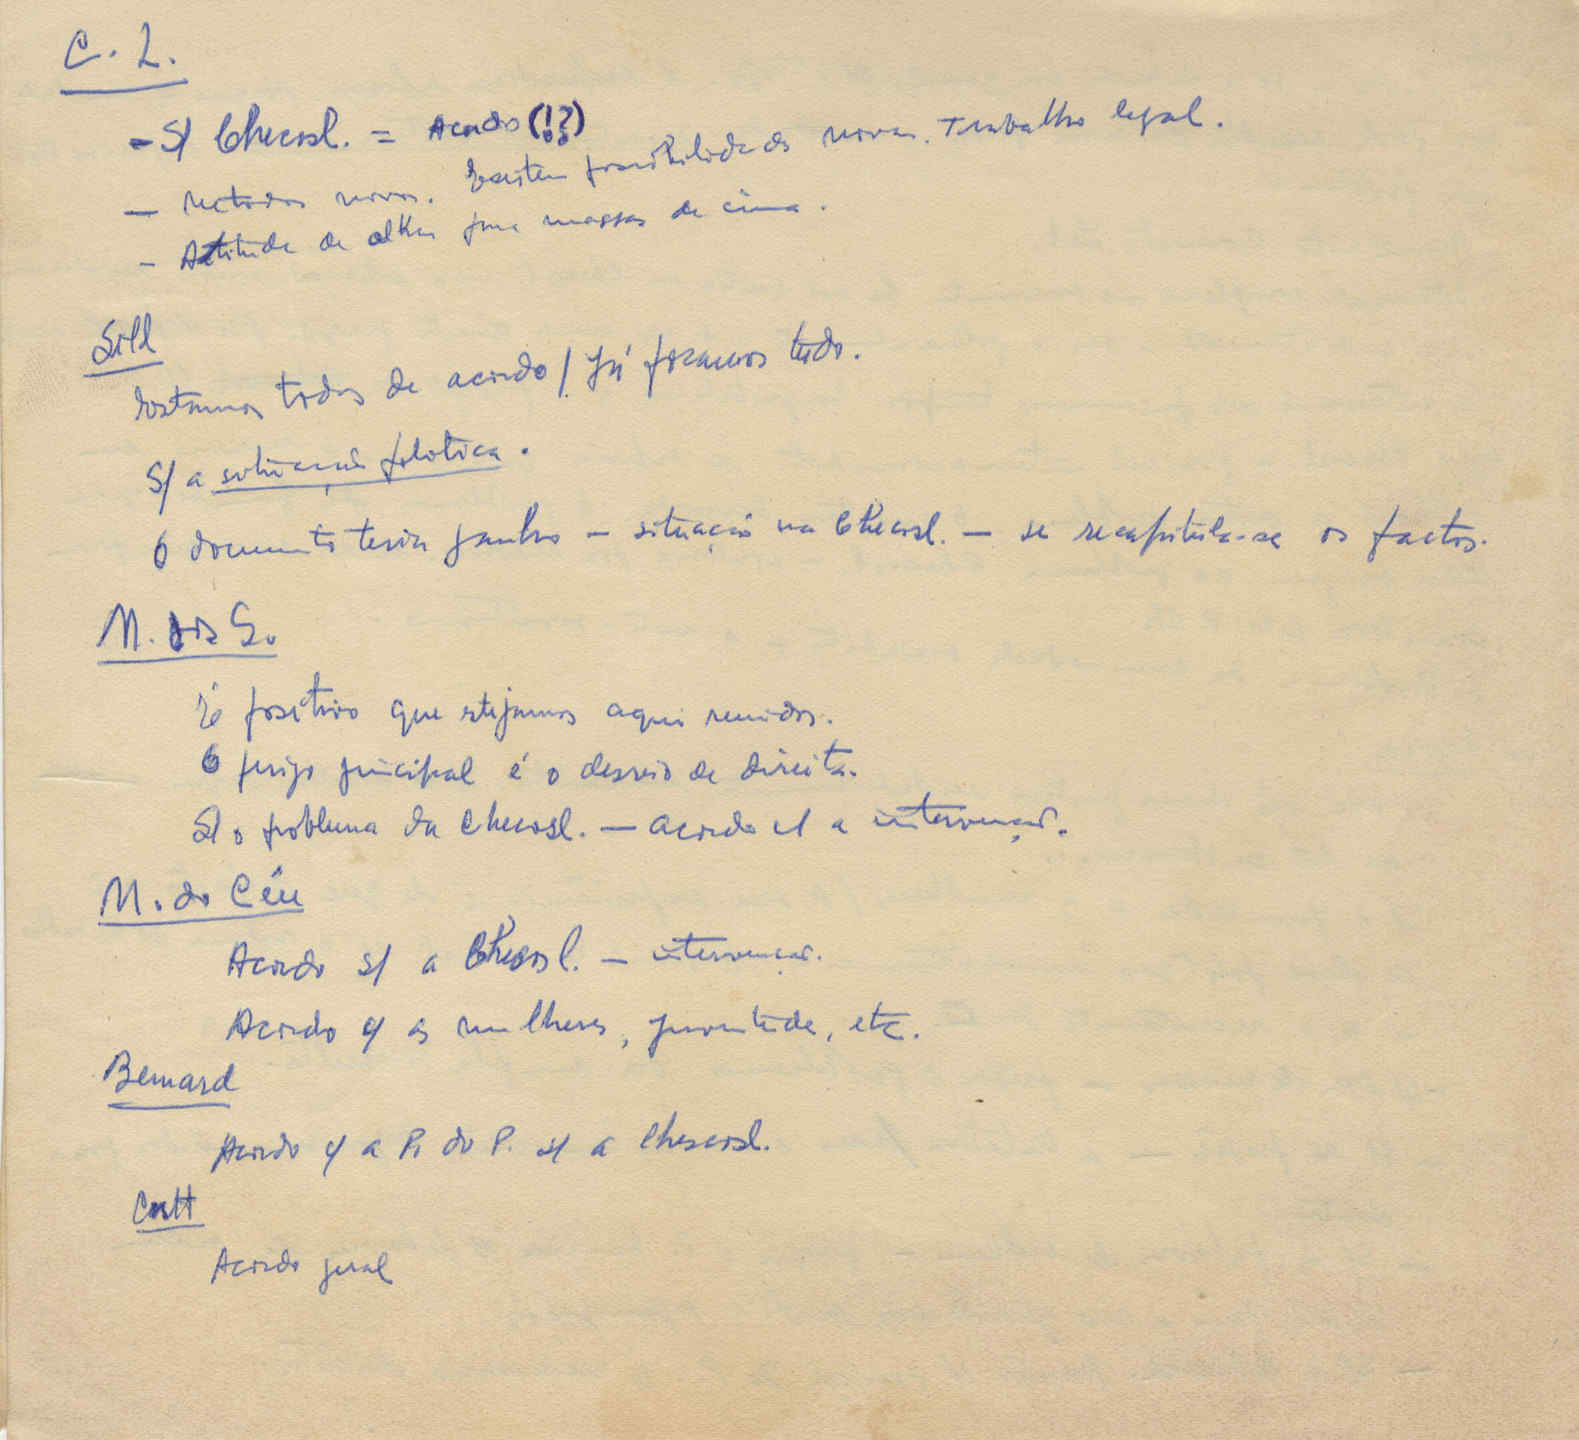 C. L.
- S/ Checosl. = Acordo (!?)
- Metodos novos. Existem possibilidades novas. Trabalho legal.
- Atitude de olhar para massas de cima.
Sill
Estamos todos de acordo / Já focamos tudo.
S/ a situação politica.
O documento teria ganho - situação na Checosl. - se recapitula-se os factos.
M. dos S.
É positivo que estejamos aqui reunidos.
O perigo principal é o desvio de direita.
S/ o problema da Checosl. - acordo c/ a intervenção.
M. do Céu
Acordo s/ a Checosl. - intervenção.
Acordo c/ as mulheres, juventude, etc.
Bernard
Acordo c/ a P. do P. s/ a Checosl.
Acordo geral